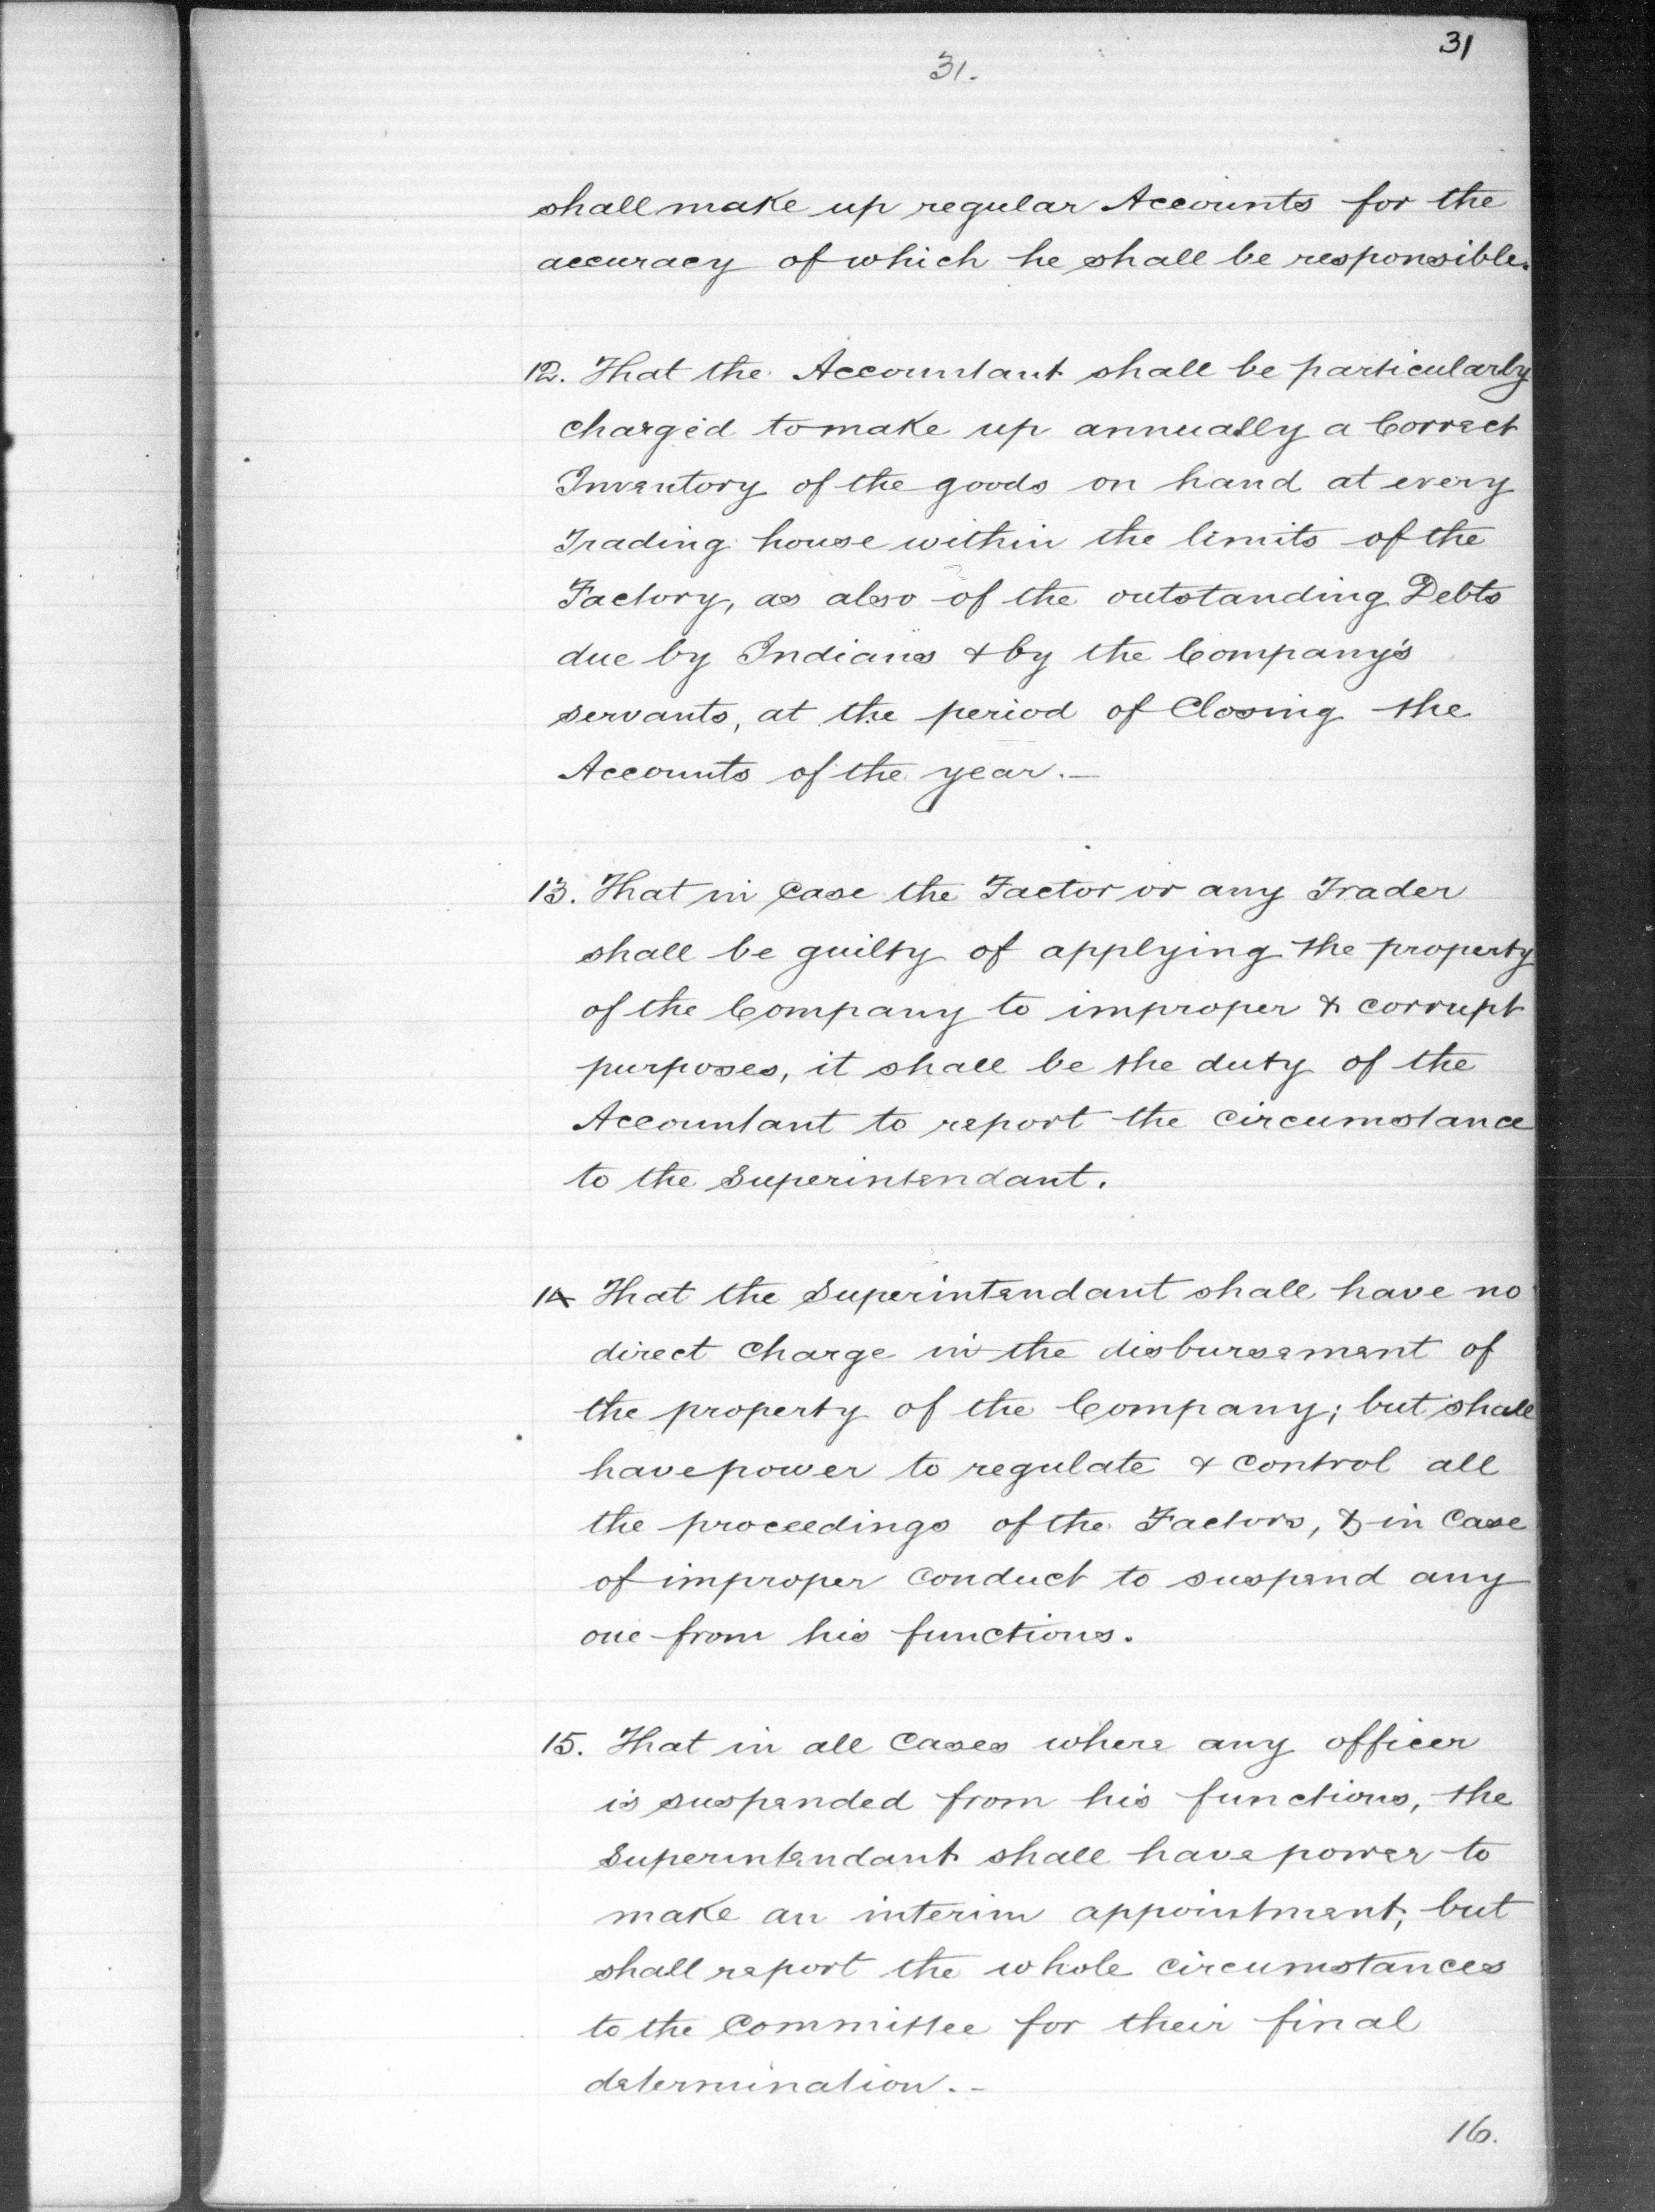 31
31.
shall make up regular Accounts for the
accuracy of which he shall be responsible.
12. That the Accountant shall be particularly
charged to make up annually a Correct
Inventory of the goods on hand at every
Trading house within the limits of the
Factory, as also of the outstanding Debts
due by Indians & by the Company's
servants, at the period of Closing the
Accounts of the year.—
13. That in Case the Factor or any Trader
shall be guilty of applying the property
of the Company to improper & corrupt
purposes, it shall be the duty of the
Accountant to report the circumstance
to the Superintendant.
14 That the Superintendant shall have no
direct Charge in the disbursement of
the property of the Company; but shall
have power to regulate & control all
the proceedings of the Factors, & in Case
of improper Conduct to suspend any
one from his functions.
15. That in all Cases where any officer
is suspended from his functions, the
Superintendant shall have power to
make an interim appointment; but
shall report the whole circumstances
to the Committee for their final
determination.-
16.